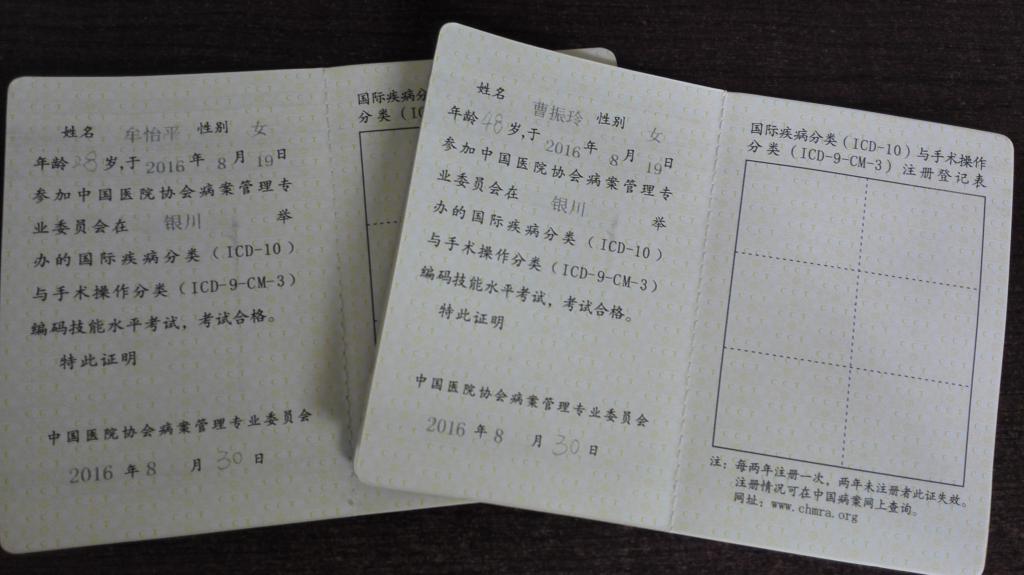 姓名 牟怡平 性别 女
年龄 28 岁,于 2016 年 8 月 19 日
参加中国医院协会病案管理专
业委员会在 银川 举
办的国际疾病分类（ICD-10）
与手术操作分类（ICD-9-CM-3）
编码技能水平考试，考试合格。
特此证明
中国医院协会病案管理专业委员会
2016 年 8 月 30 日
国际疾病分
分类（IC
姓名 曹振玲 性别 女
年龄 48 岁,于 2016 年 8 月 19 日
参加中国医院协会病案管理专
业委员会在 银川 举
办的国际疾病分类（ICD-10）
与手术操作分类（ICD-9-CM-3）
编码技能水平考试，考试合格。
特此证明
中国医院协会病案管理专业委员会
2016 年 8 月 30 日
国际疾病分类（ICD-10）与手术操作
分类（ICD-9-CM-3）注册登记表
注：每两年注册一次，两年未注册者此证失效。
注册情况可在中国病案网上查询。
网址：www.chmra.org